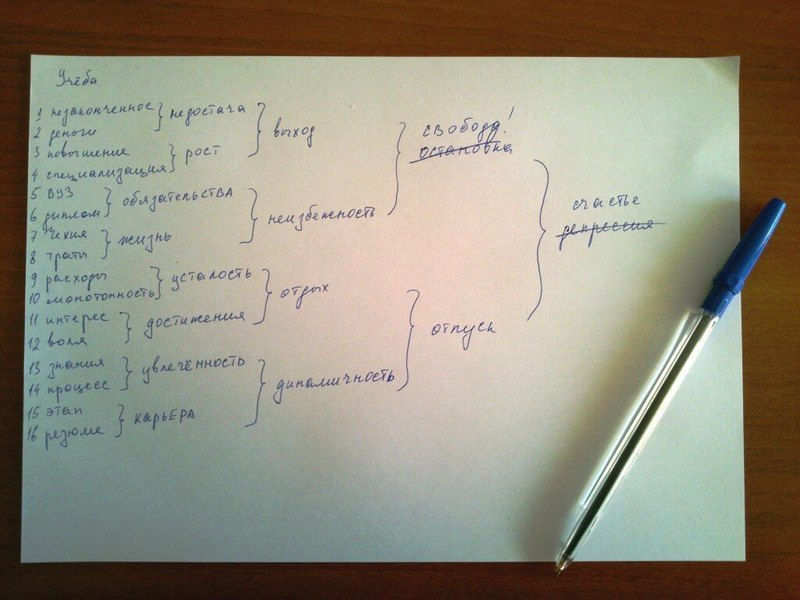 Учёба
1 незаконченное } недостача
2 деньги
} выход
3 повышение
4 специализация } рост
свобода!
остановка
5 ВУЗ
6 диплом } обязательства
} неизбежность
7 Чехия
8 траты } жизнь
счастье
депрессия
9 расходы
10 монотонность } усталость
} отдых
11 интерес
12 воля } достижения
} отпуск
13 знания
14 процесс } увлечённость
} динамичность
15 этап
16 резюме } карьера